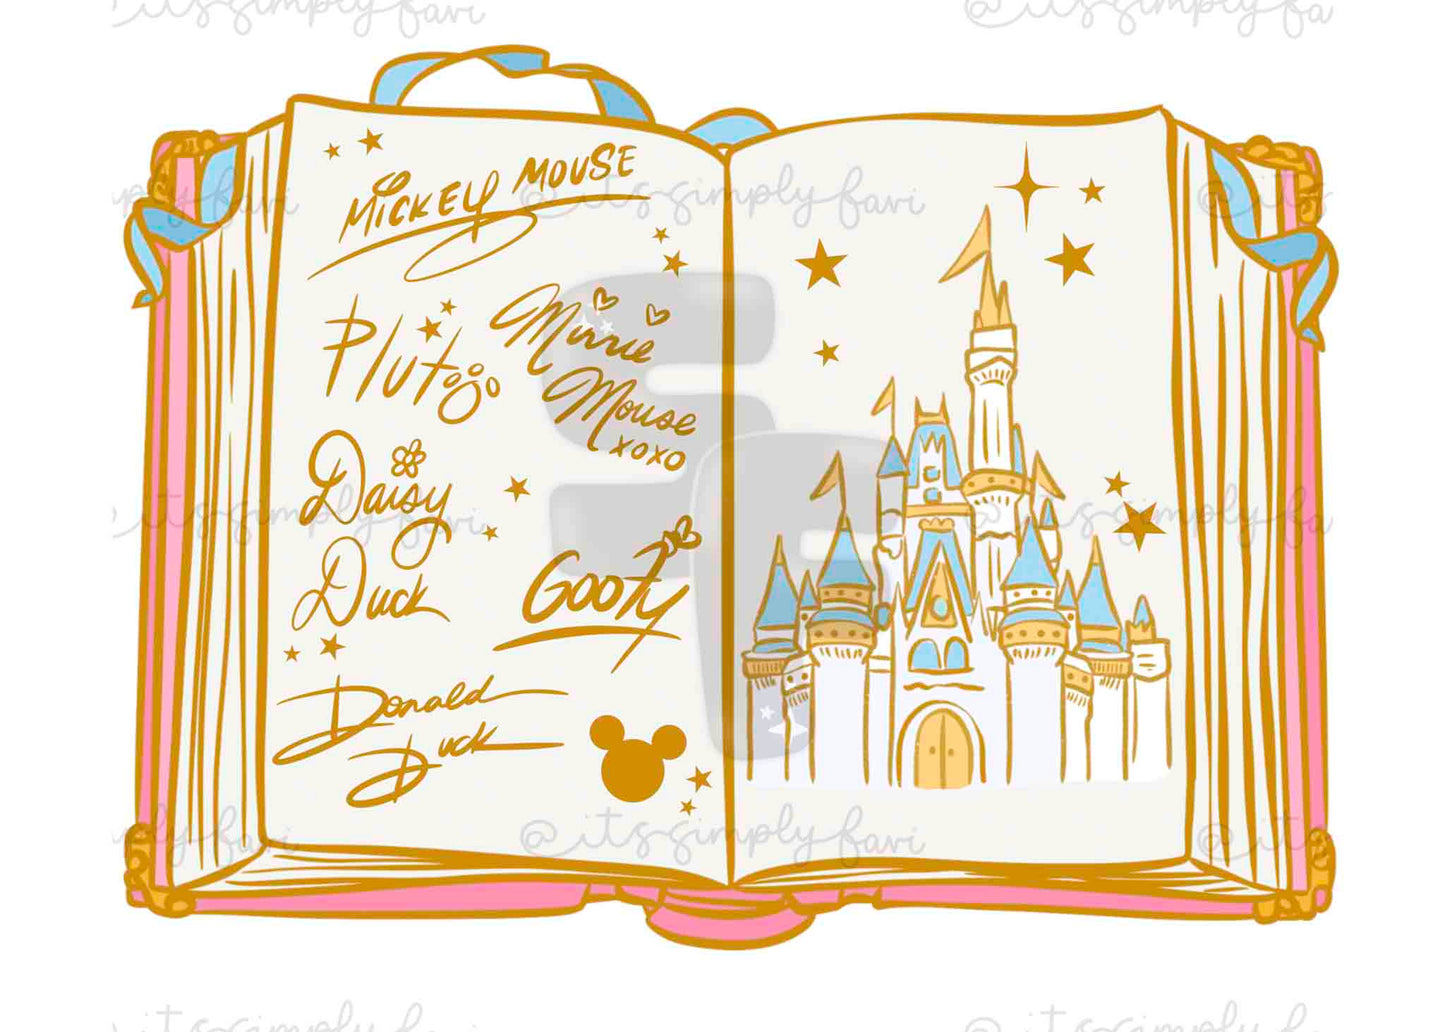 @itssimplyfavi
@itssimplyfa
MICKEY MOUSE
@itssimplyfavi
Pluto
Minnie
Mouse
xoxo
Daisy
Duck
GOOFY
Donald
Duck
@itssimplyfavi
SF